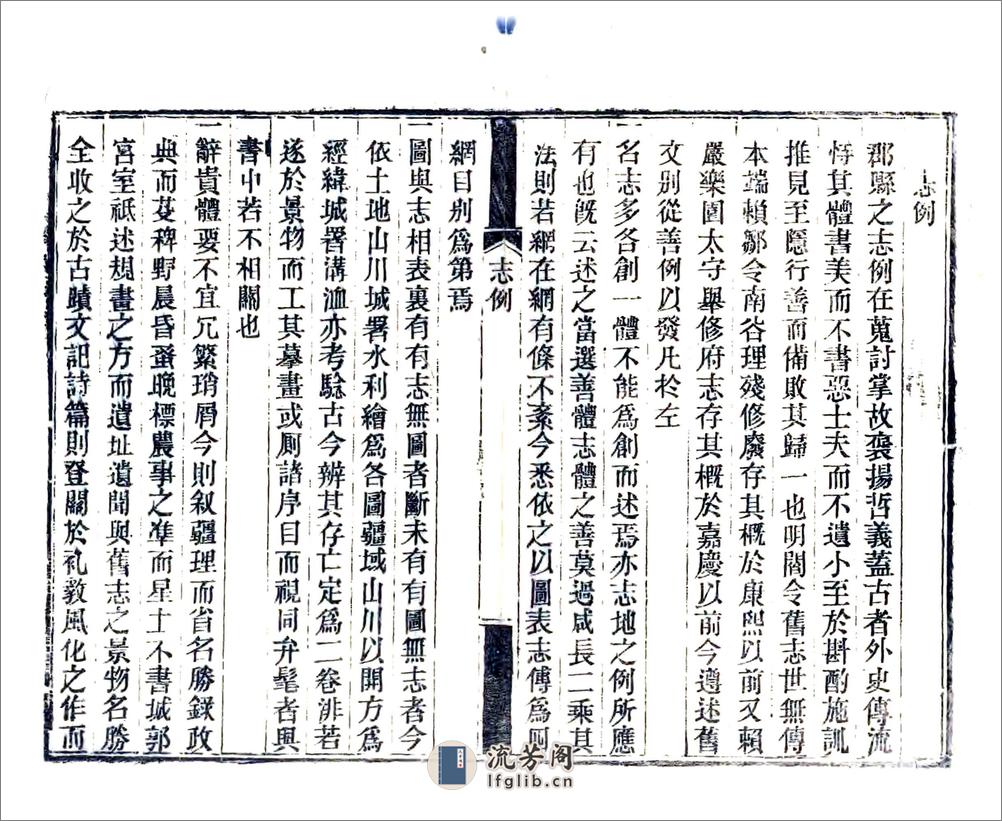 志例
郡縣之志例在蒐討掌故襃揚哲義蓋古者外史傳流
悟其體書美而不書惡士夫而不遺小至於斟酌施訓
推見至隱行善而備敗其歸一也明閻令舊志世無傳
本端賴鄒令南谷理殘修廢存其概於康熙以前又賴
嚴樂園太守舉修府志存其概於嘉慶以前今遵述舊
文别從善例以發凡於左
一名志多各創一體不能爲創而述焉亦志地之例所應
有也旣云述之當選善體志體之善莫過咸長二乘其
法則若網在網有條不紊今悉依之以圖表志傳爲四
綱目别爲第焉
一圖與志相表裏有有志無圖者斷未有有圖無志者今
依土地山川城署水利繪爲各圖疆域山川以開方爲
經緯城署溝洫亦考騐古今辨其存亡定爲二卷非若
遂於景物而工其摹畫或厠諸序目而視同弁髦者與
書中若不相關也
一辭貴體要不宜冗繁瑣屑今則叙疆理而省名勝錄政
典而芟稗野晨昏蚤晚標農事之準而星土不書城郭
宮室祗述規畫之方而遺址遺聞與舊志之景物名勝
全收之於古蹟文記詩篇則登關於礼敎風化之作而
志例
流芳阁
lfglib.cn